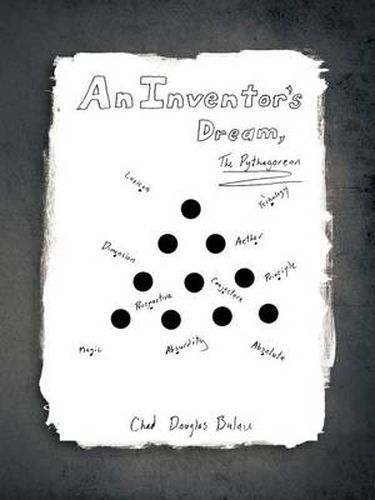 An Inventor's
Dream,
The Pythagorean
Lexicon
Dimension
Aether
Principle
Perspective
Conjecture
Magic
Absurdity
Absolute
Chad Douglas Bulau